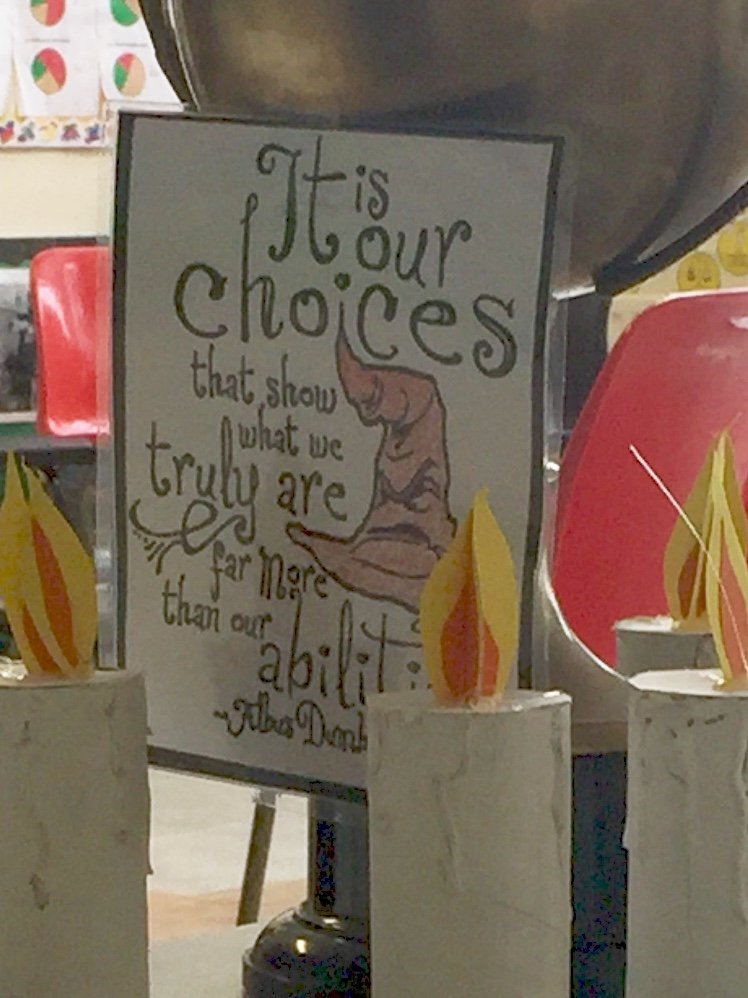 It is
our
choices
that show
what we
truly are
far more
than our
abiliti
~Albus Dumb